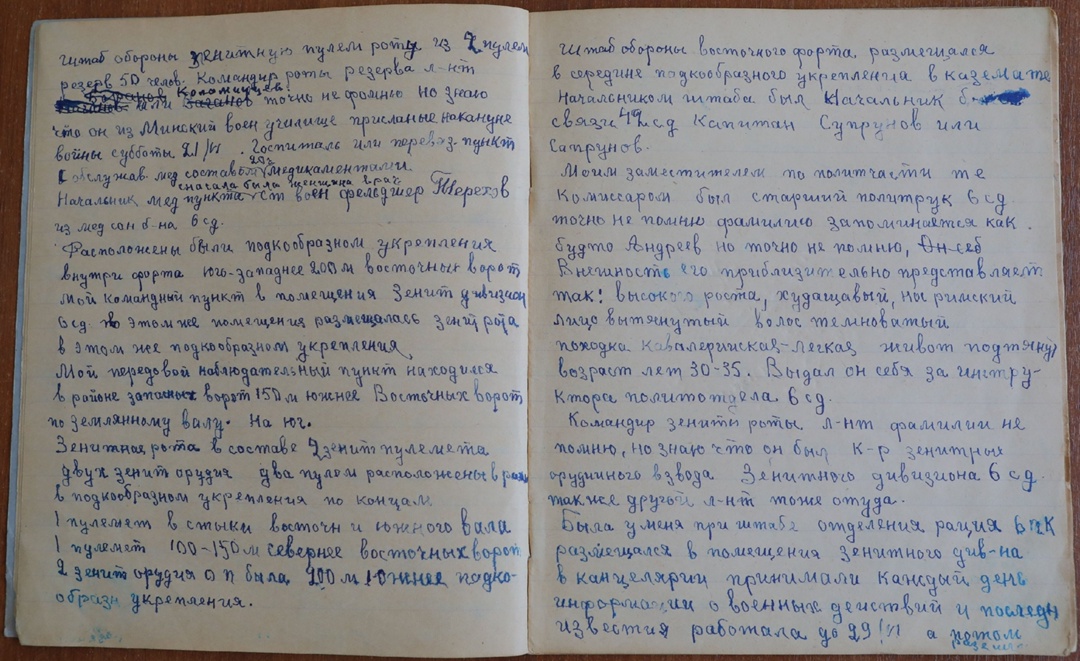 Штаб обороны зенитную пулем роту из 2 пулем
резерв 50 челов. Командир роты резерва л-нт
Коломийцев
или Баганов точно не помню но знаю
что он из Минский воен училище присланые накануне
войны субботы 21/VI. Госпиталь или перевяз. пункт
обслужив. мед составом без медикаментами
сначала была женщина врач
Начальник мед пункта ст воен фельдшер Терехов
из мед сан б-на 6 сд.
Расположены были подкообразном укрепления
внутри форта юго-западнее 200 м восточных ворот
Мой командный пункт в помещения Зенит дивизион
6 сд. в этом же помещения размещалась зенит рота
в этом же подкообразном укрепления
Мой передовой наблюдательный пункт находился
в районе запасных ворот 150 м южнее Восточных ворот
по землянному валу. На юг.
Зенитная рота в составе 2 зенит пулемета
двух зенит орудия два пулем расположены в
в подкообразном укрепления по концам
1 пулемет в стыки восточн и южного вала
1 пулемет 100-150 м севернее восточных ворот
2 зенит орудия О п была 200 м южнее подко-
образн укрепления.
Штаб обороны восточного форта размещался
в середине подкообразного укрепления в каземате
Начальником штаба был начальник б.
связи 49 сд Капитан Супрунов или
Сапрунов.
Моим заместителем по политчасти те
комиссаром был старший политрук 6 сд
точно не помню фамилию запоминается как
будто Андреев но точно не помню, Он себ
Внешность его приблизительно представляет
так: высокого роста, худащавый, на римский
лицо вытянутый волос темноватый
походка кавалерийская-легкая живот подтяну
возраст лет 30-35. Выдал он себя за инстру-
ктора политотдела 6 сд.
Командир зенитн роты л-нт фамилии не
помню, но знаю что он был к-р зенитных
орудииного взвода Зенитного дивизиона 6 сд.
также другой л-нт тоже отуда.
Была у меня при штабе отделения рация 6 ПК
размещался в помещения зенитного див-на
в канцелярии принимали каждый день
информации о военных действий и последн
известия работала до 29/VI а потом